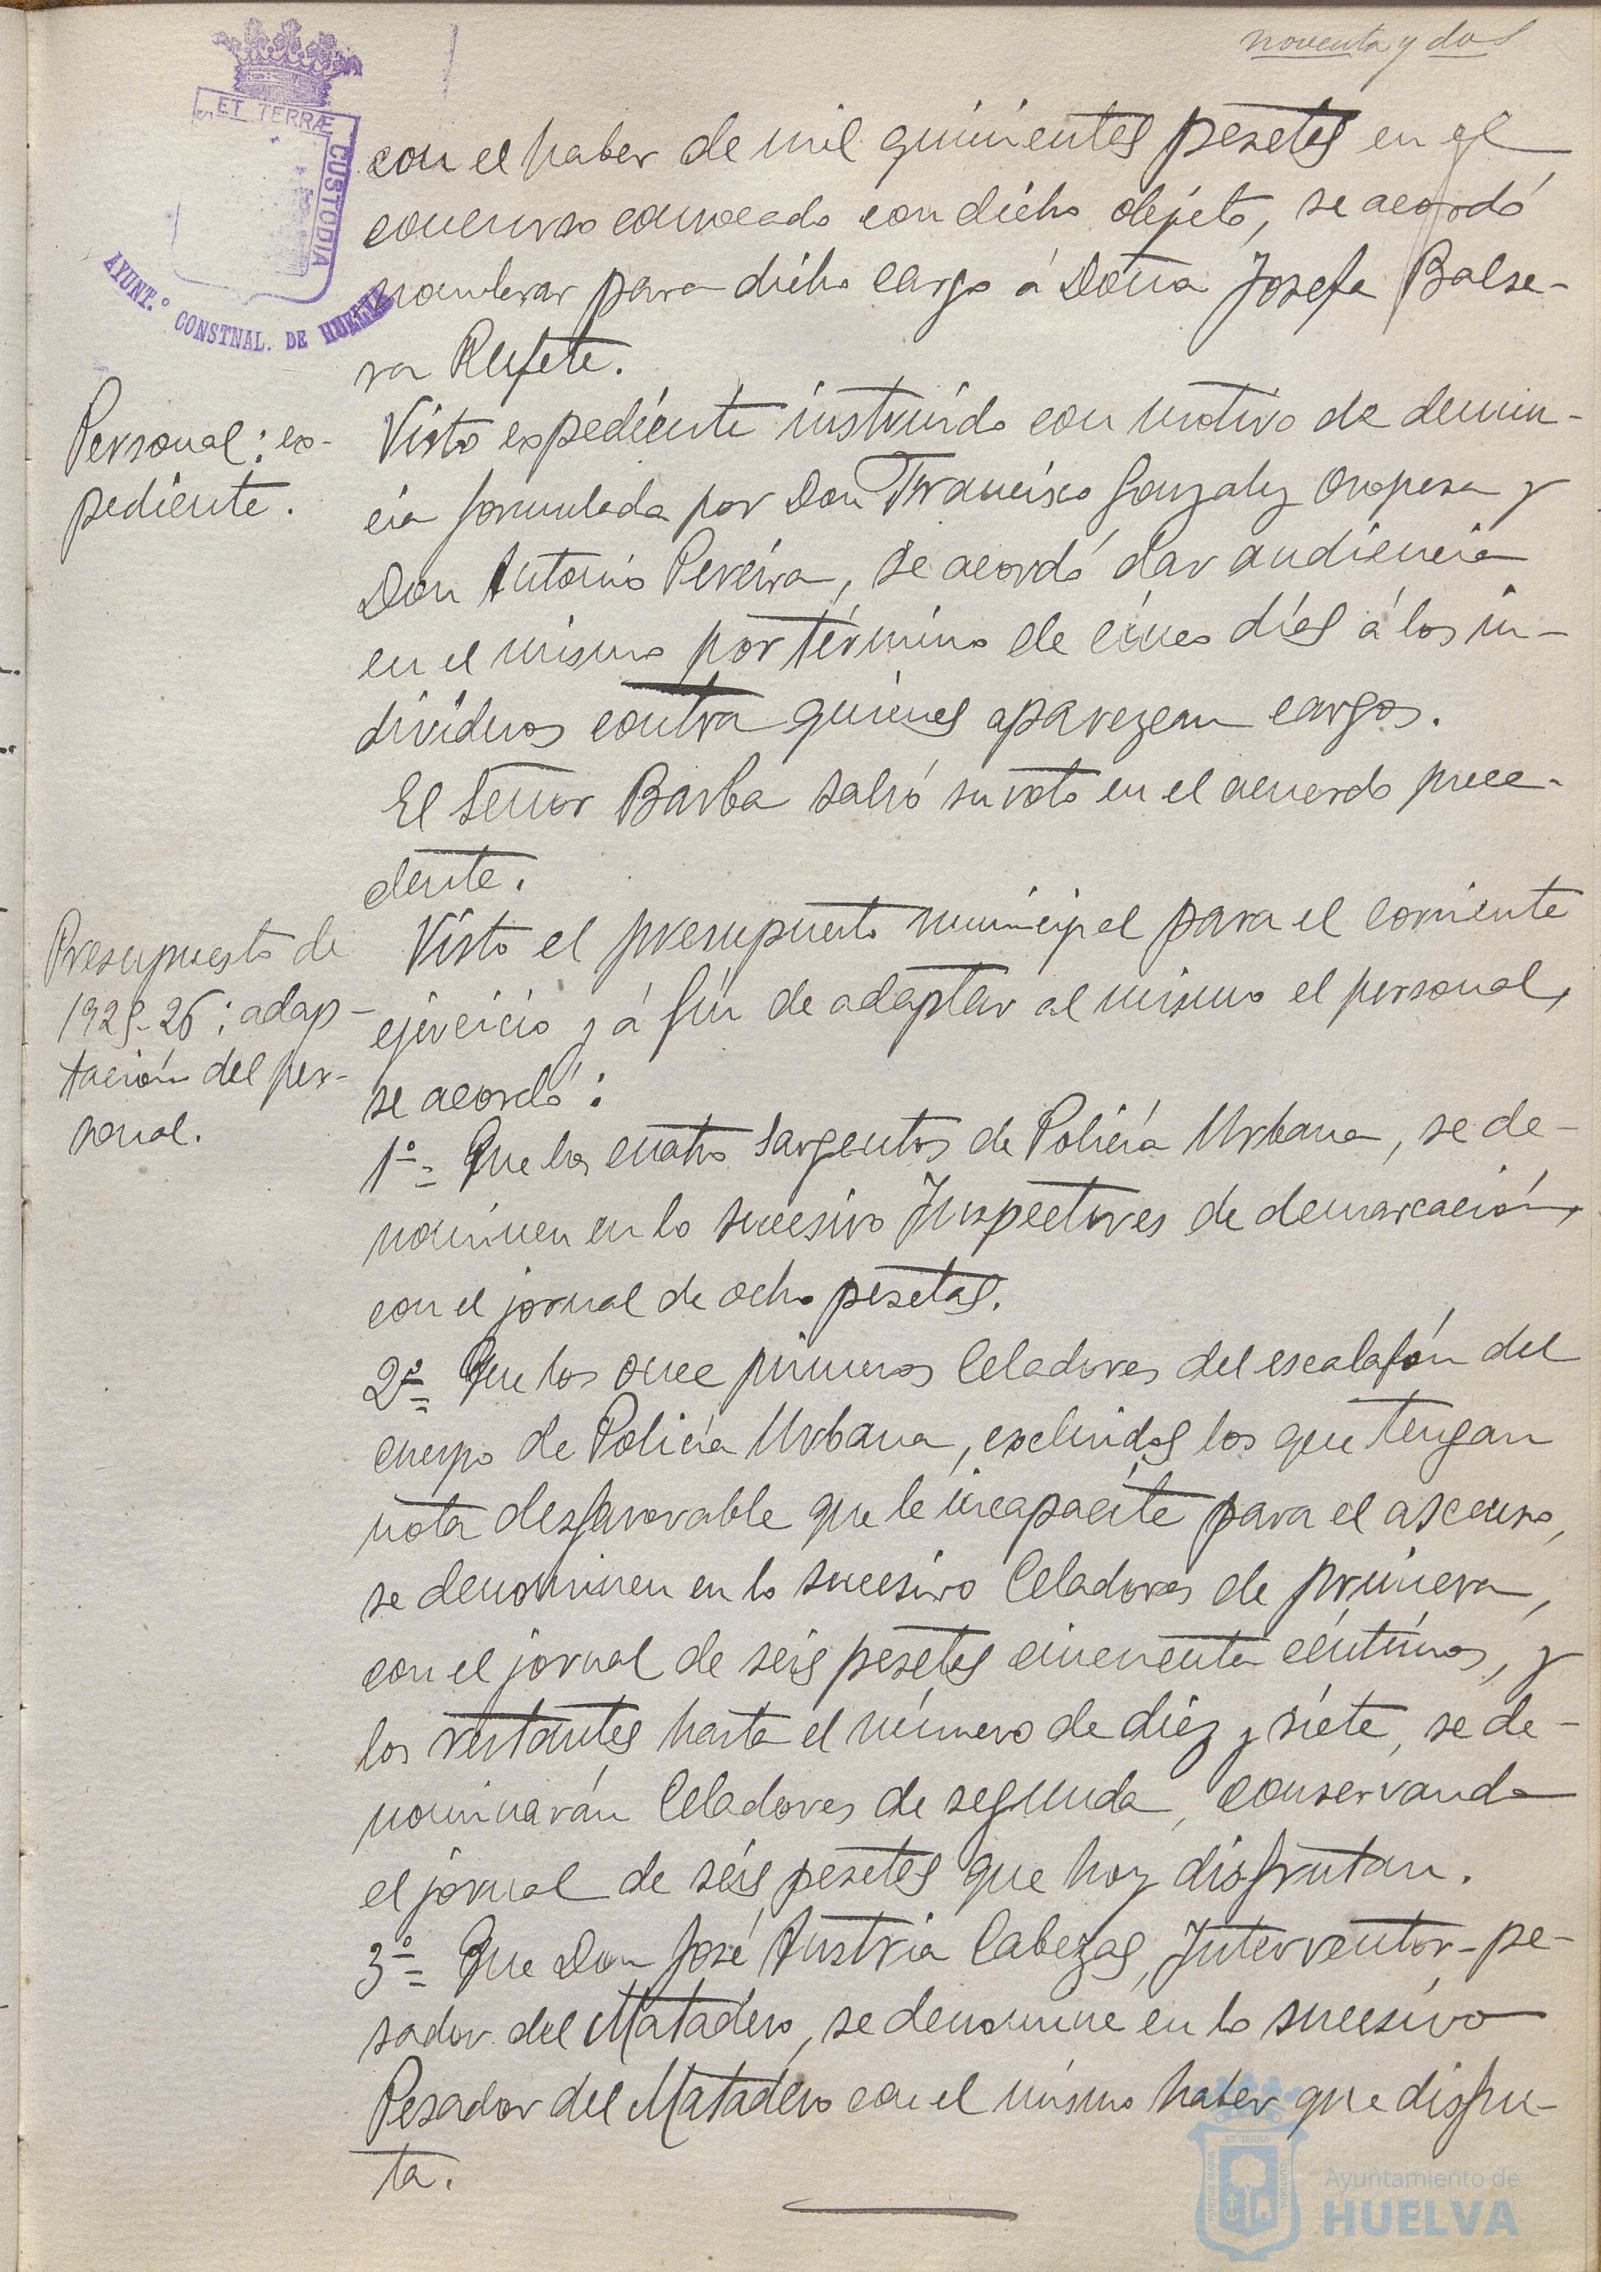 noventa y dos
ET TERRÆ CUSTODIA
AYUNT.º CONSTNAL. DE HUELVA
con el haber de mil quinientas pesetas en el
concurso convocado con dicho objeto, se acordó
nombrar para dicho cargo á Doña Josefa Balse-
ra Rufete.
Personal: ex-
pediente.
Visto expediente instruido con motivo de denun-
cia formulada por Don Francisco Gonzalez Oropesa y
Don Antonio Pereira, se acordó dar audiencia
en el mismo por término de cinco días á los in-
dividuos contra quienes aparezcan cargos.
El Señor Barba salvó su voto en el acuerdo prece-
dente.
Presupuesto de
1925-26; adap-
tación del per-
sonal.
Visto el presupuesto municipal para el corriente
ejercicio y á fin de adaptar al mismo el personal,
se acordó:
1º= Que los cuatro Sargentos de Policía Urbana, se de-
nominen en lo sucesivo Inspectores de demarcación,
con el jornal de ocho pesetas.
2º= Que los once primeros Celadores del escalafón del
cuerpo de Policía Urbana, excluidos los que tengan
nota desfavorable que le incapacite para el ascenso,
se denominen en lo sucesivo Celadores de primera,
con el jornal de seis pesetas cincuenta céntimos, y
los restantes hasta el número de diez y siete, se de-
nominarán Celadores de segunda, conservando
el jornal de seis pesetas que hoy disfrutan.
3º= Que Don José Austria Cabezas, Interventor-pe-
sador del Matadero, se denomine en lo sucesivo
Pesador del Matadero con el mismo haber que disfru-
ta.
Ayuntamiento de
HUELVA